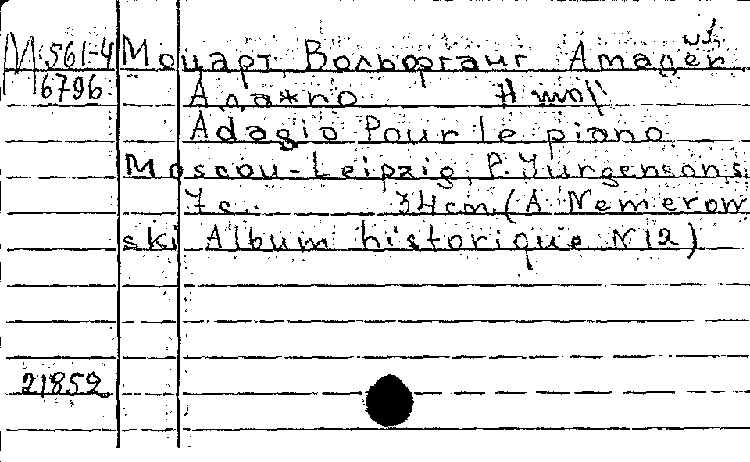 М 561-4 Моцарт, Вольфганг Амадей
6796 Адажио H moll
Adagio Pour le piano
Moscou-Leipzig, P. Jurgenson, s.
7 с. 34 cm. (A Nemerow
ski Album historique N 12)
21852